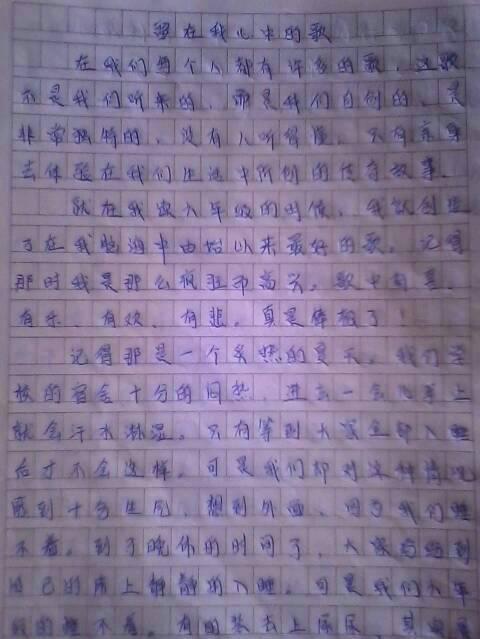 留在我心中的歌
在我们每个人都有许多的歌，这歌
不是我们听来的，而是我们自创的，是
非常独特的，没有人听得懂，只有亲身
去体验在我们生活中所创的传奇故事。
就在我读六年级的时候，我就创造
了在我脑海中由始以来最好的歌。记得
那时我是那么疯狂那高兴。歌中有喜、
有乐、有欢、有悲，真是棒极了！
记得那是一个炎热的夏天，我们学
校的宿舍十分的闷热，进去一会儿身上
就会汗水淋湿。只有等到大家全部入睡
后才不会这样。可是我们却对这种情况
感到十分生气，想到外面，同学我们睡
不着。到了晚休的时间了，大家都回到
自己的床上静静的入睡。可是我们六年
级的睡不着。有的装去上尿尿，其